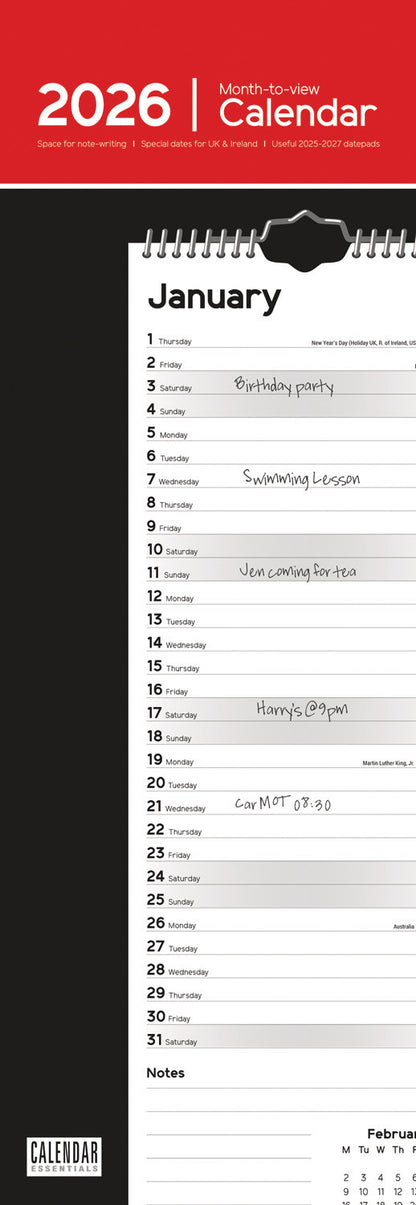 2026 | Month-to-view Calendar
Space for note-writing | Special dates for UK & Ireland | Useful 2025-2027 datepads
January
1 Thursday New Year's Day (Holiday UK, R. of Ireland, US
2 Friday
3 Saturday Birthday party
4 Sunday
5 Monday
6 Tuesday
7 Wednesday Swimming Lesson
8 Thursday
9 Friday
10 Saturday
11 Sunday Jen coming for tea
12 Monday
13 Tuesday
14 Wednesday
15 Thursday
16 Friday
17 Saturday Harry's @ 9pm
18 Sunday
19 Monday Martin Luther King, Jr.
20 Tuesday
21 Wednesday Car MOT 08:30
22 Thursday
23 Friday
24 Saturday
25 Sunday
26 Monday Australia
27 Tuesday
28 Wednesday
29 Thursday
30 Friday
31 Saturday
Notes
Februar
M Tu W Th F
2 3 4 5 6
9 10 11 12
16 17 18 19
CALENDAR
ESSENTIALS